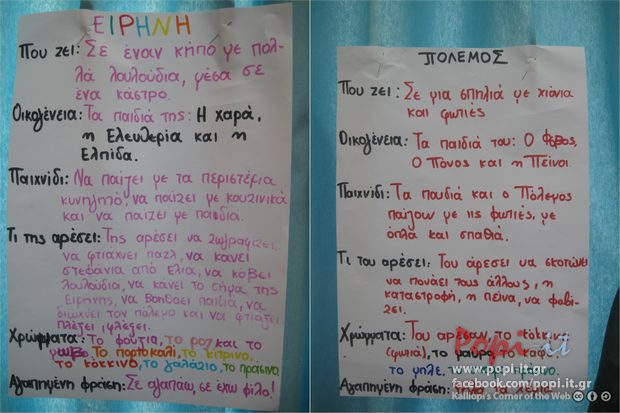 ΕΙΡΗΝΗ
Που ζει: Σε έναν κήπο με πολ-
λά λουλούδια, μέσα σε
ένα κάστρο.
Οικογένεια: Τα παιδιά της: Η χαρά,
η Ελευθερία και η
Ελπίδα.
Παιχνίδι: Να παίζει με τα περιστέρια
κυνηγητό να παίζει με κουζινικά
και να παίζει με παιδιά.
Τι της αρέσει: Της αρέσει να ζωγραφίζει,
να φτιάχνει παζλ, να κάνει
στεφάνια από ελιά, να κόβει
λουλούδια, να κάνει το σήμα της
Ειρήνης, να βοηθάει παιδιά, να
διώχνει τον πόλεμο και να φτιάχνει
πλέξει
Χρώματα: Το φούξια, το ροζ και το
Το πορτοκαλί, το κίτρινο,
το κόκκινο, το γαλάζιο, το πράσινο
Αγαπημένη φράση: Σε αγαπάω, σε έχω φίλο!
ΠΟΛΕΜΟΣ
Που ζει: Σε μια σπηλιά με χιόνια
και φωτιές
Οικογένεια: Τα παιδιά του: Ο Φόβος,
Ο Πόνος και η Πείνα.
Παιχνίδι: Τα παιδιά και ο Πόλεμος
παίζουν με τις φωτιές, με
όπλα και σπαθιά.
Τι του αρέσει: Του άρεσει να σκοτώνει
να πονάει τους άλλους, η
καταστροφή, η πείνα, να φοβί-
ζει.
Χρώματα: Του αρέσουν, το κόκκινο
(φωτιά), το μαύρο, το καφέ
το μπλε, το
Αγαπημένη φράση:
Popi-it
www.popi-it.gr
facebook.com/popi.it.gr
Kalliopi's Corner of the Web